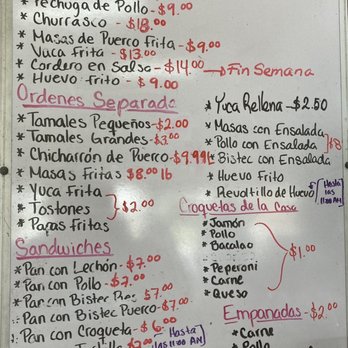 * Pechuga de Pollo - $9.00
* Churrasco - $18.00
* Masas de Puerco Frita - $9.00
* Vuca Frita - $13.00
* Cordero en Salsa - $14.00 → Fin Semana
* Huevo Frito - $9.00
Ordenes Separada
* Tamales Pequeños - $2.00
* Tamales Grandes - $3.00
* Chicharrón de Puerco - $9.99 lb
* Masas Fritas $8.00 lb
* Yuca Frita
* Tostones } $2.00
* Papas Fritas
Sandwiches
* Pan con Lechón - $7.00
* Pan con Pollo - $7.00
* Pan con Bistec Res $7.00
* Pan con Bistec Puerco - $7.00
* Pan con Croqueta - $6.00
Hasta
las 11:00 AM
$7.00
* Yuca Rellena - $2.50
* Masas con Ensalada
* Pollo con Ensalada } $8
* Bistec con Ensalada
* Huevo Frito
* Revoltillo de Huevo
Hasta
las
11:00 AM
Croquetas de la Casa
* Jamón
* Pollo
* Bacalao
$1.00
* Peperoni
* Carne
* Queso
Empanadas - $2.00
* Carne
* Pollo